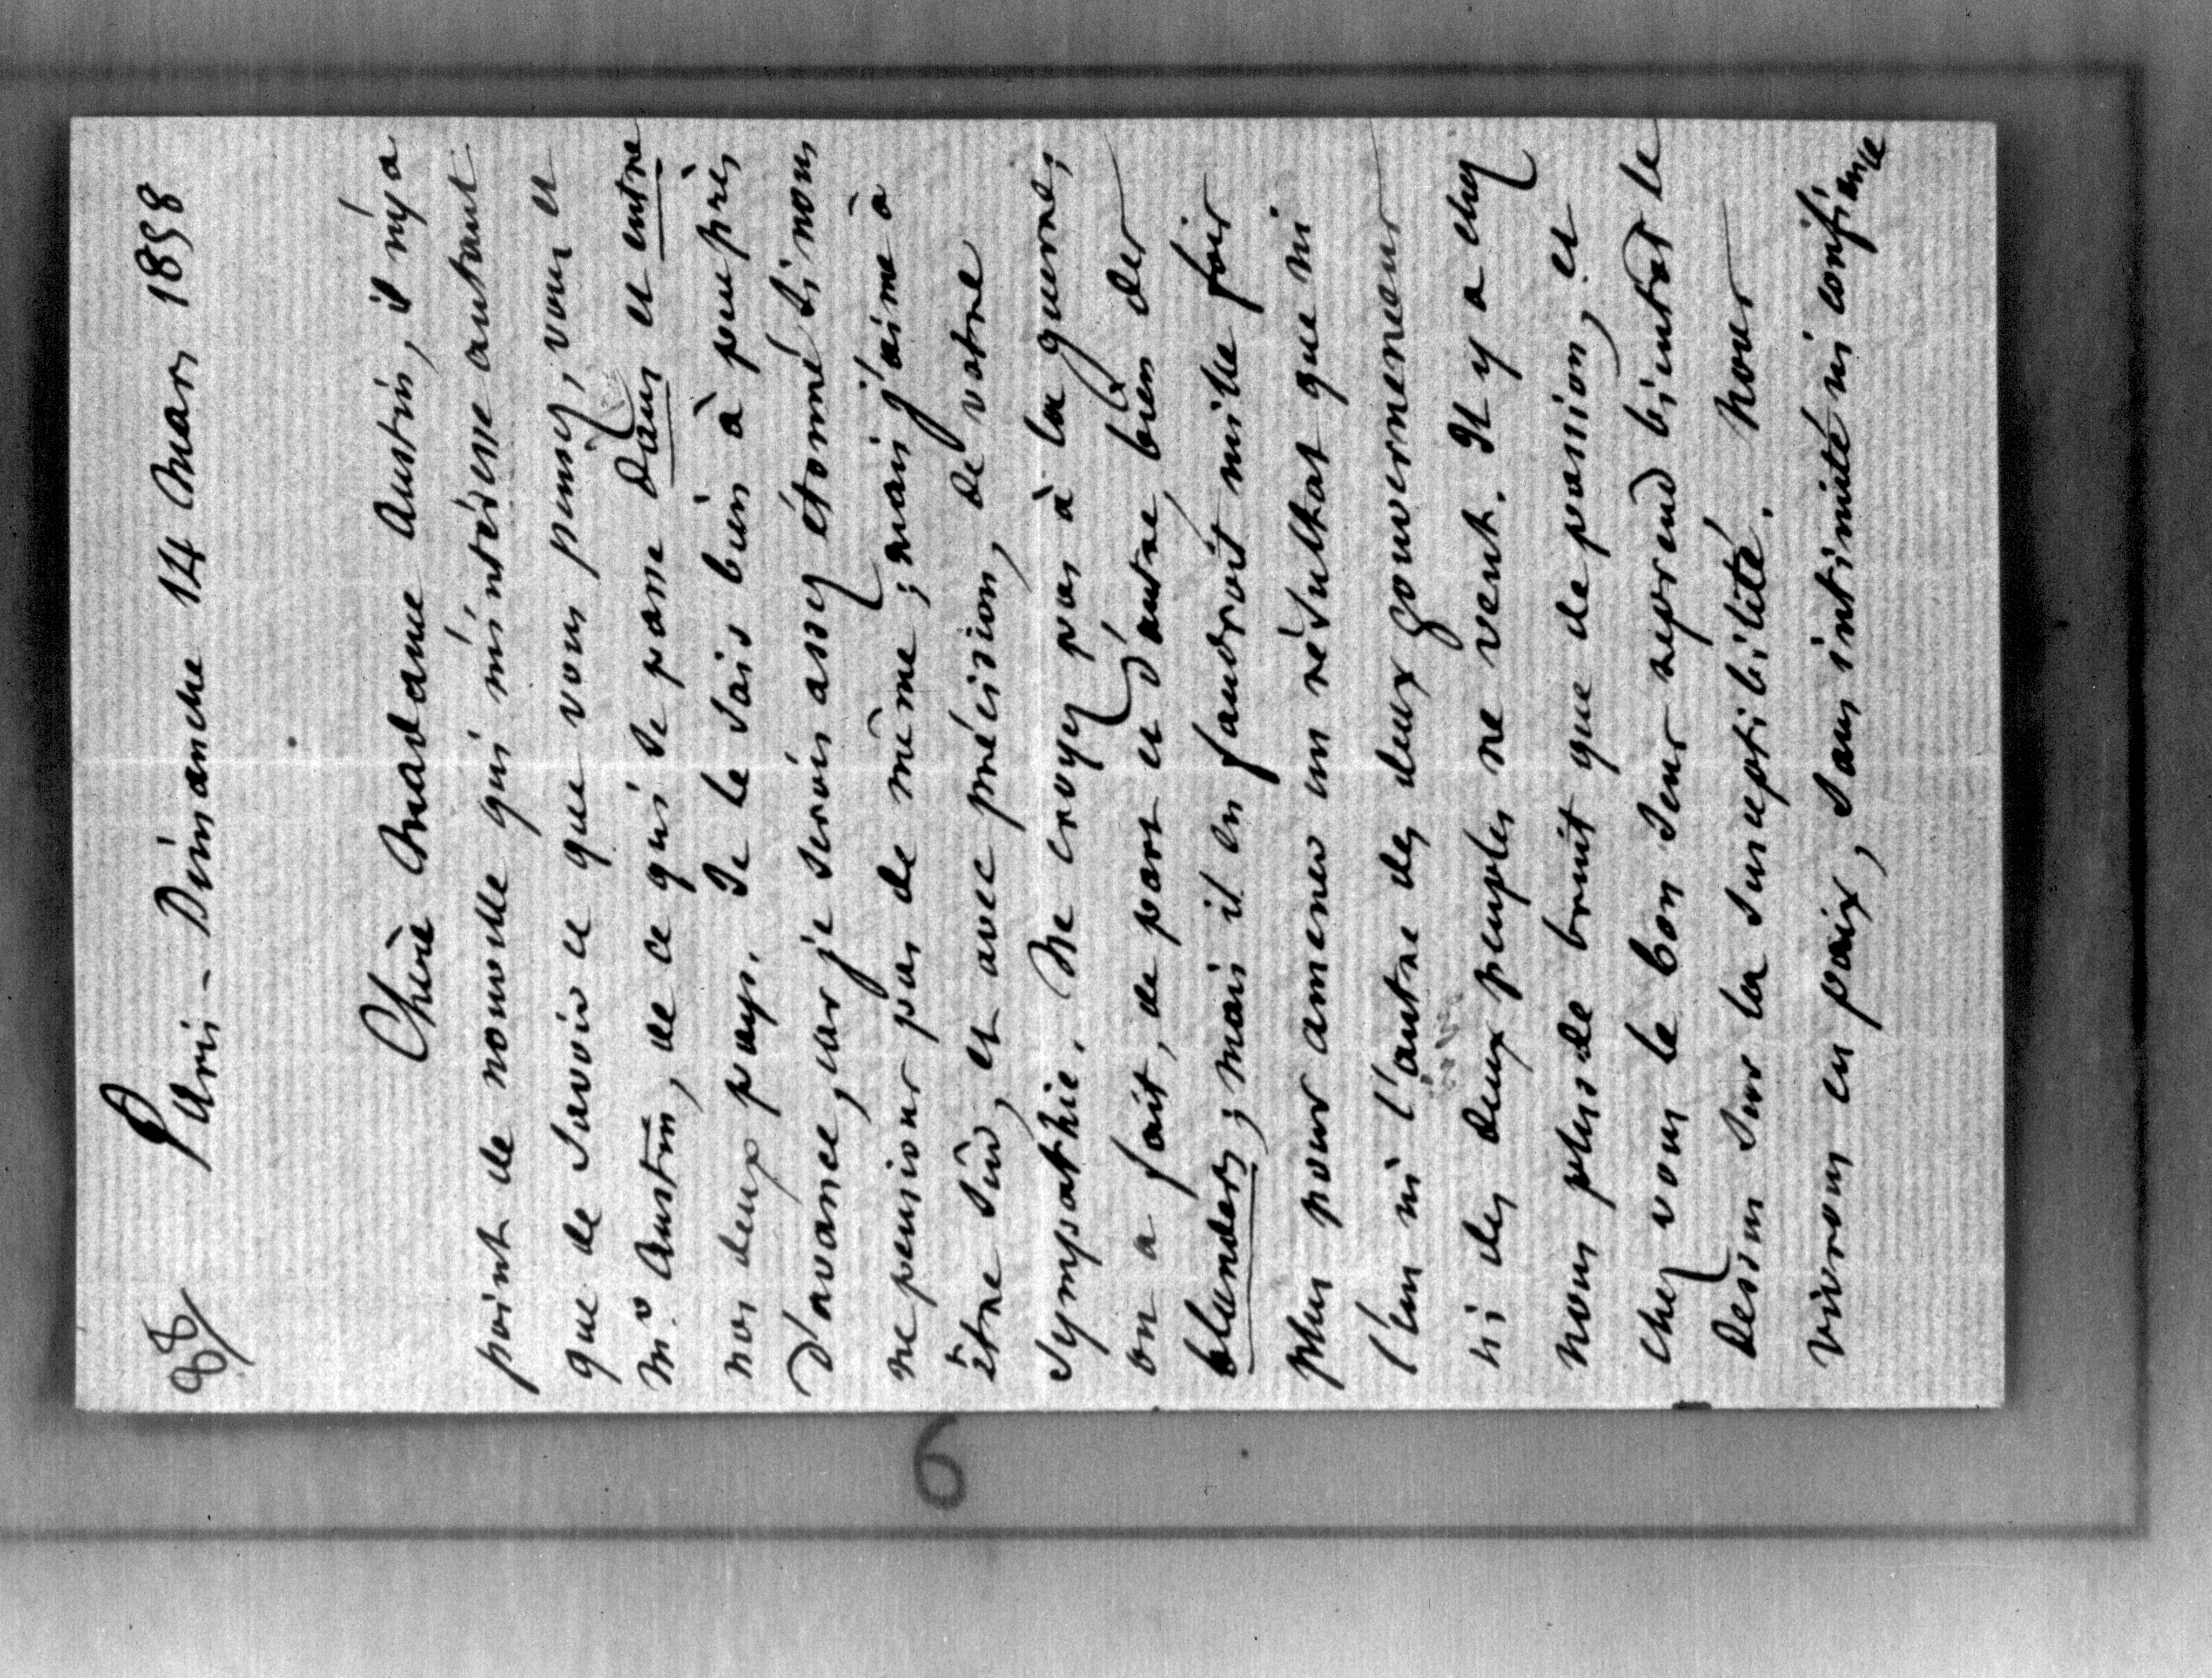 88/
Paris - Dimanche 14 Mars 1858
Chère Madame Austin, il n'y a
point de nouvelle qui m'intéresse autant
que de savoir ce que vous pensez, vous et
Mr. Austin, de ce qui se passe dans et entre
nos deux pays. Je le sais bien à peu près
d'avance, car je serois assez étonné si nous
ne pensions pas de même ; mais j'aime à
être sûr, et avec précision, de votre
sympathie. Ne croyez pas à la guerre ;
on a fait, de part et d'autre, bien des
blunders ; mais il en faudroit mille fois
plus pour amener un résultat que ni
l'un ni l'autre des deux gouvernemens
ni des deux peuples ne veut. Il y a chez
nous plus de bruit que de passion, et
chez vous le bon sens reprend bientot le
dessus sur la susceptibilité. Nous
vivrons en paix, sans intimité ni confiance
6